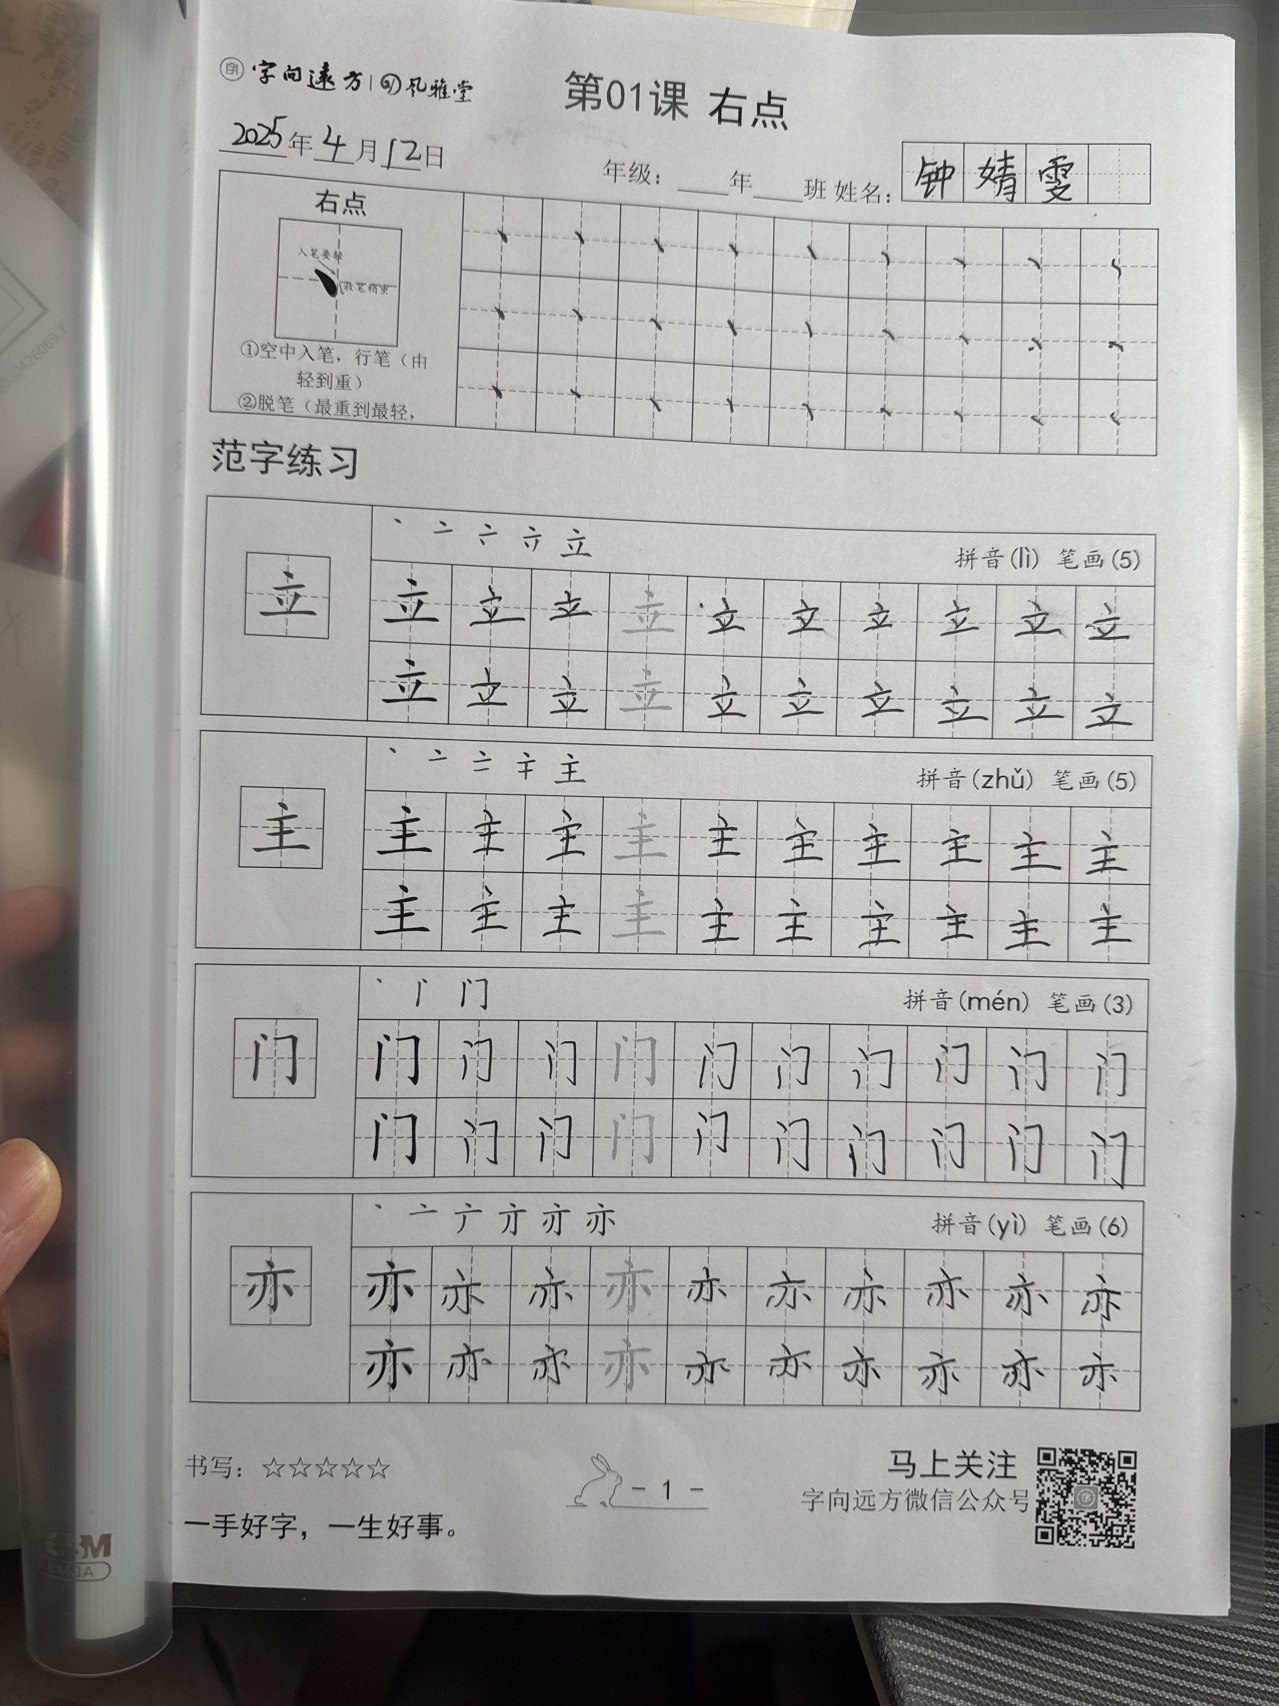 字向远方 | 风雅堂
第01课 右点
2025年4月12日
年级：___年___班 姓名：钟婧雯
右点
入笔要轻
收笔稍重
①空中入笔，行笔（由
轻到重）
②脱笔（最重到最轻，
范字练习
丶 亠 立
拼音(lì) 笔画(5)
立 立 立 立 立 立 立 立 立 立 立
立 立 立 立 立 立 立 立 立 立
丶 亠 主
拼音(zhǔ) 笔画(5)
主 主 主 主 主 主 主 主 主 主 主
主 主 主 主 主 主 主 主 主 主
丶 门
拼音(mén) 笔画(3)
门 门 门 门 门 门 门 门 门 门 门
门 门 门 门 门 门 门 门 门 门
丶 亠 亦
拼音(yì) 笔画(6)
亦 亦 亦 亦 亦 亦 亦 亦 亦 亦 亦
亦 亦 亦 亦 亦 亦 亦 亦 亦 亦
书写：☆☆☆☆☆
一手好字，一生好事。
- 1 -
马上关注
字向远方微信公众号